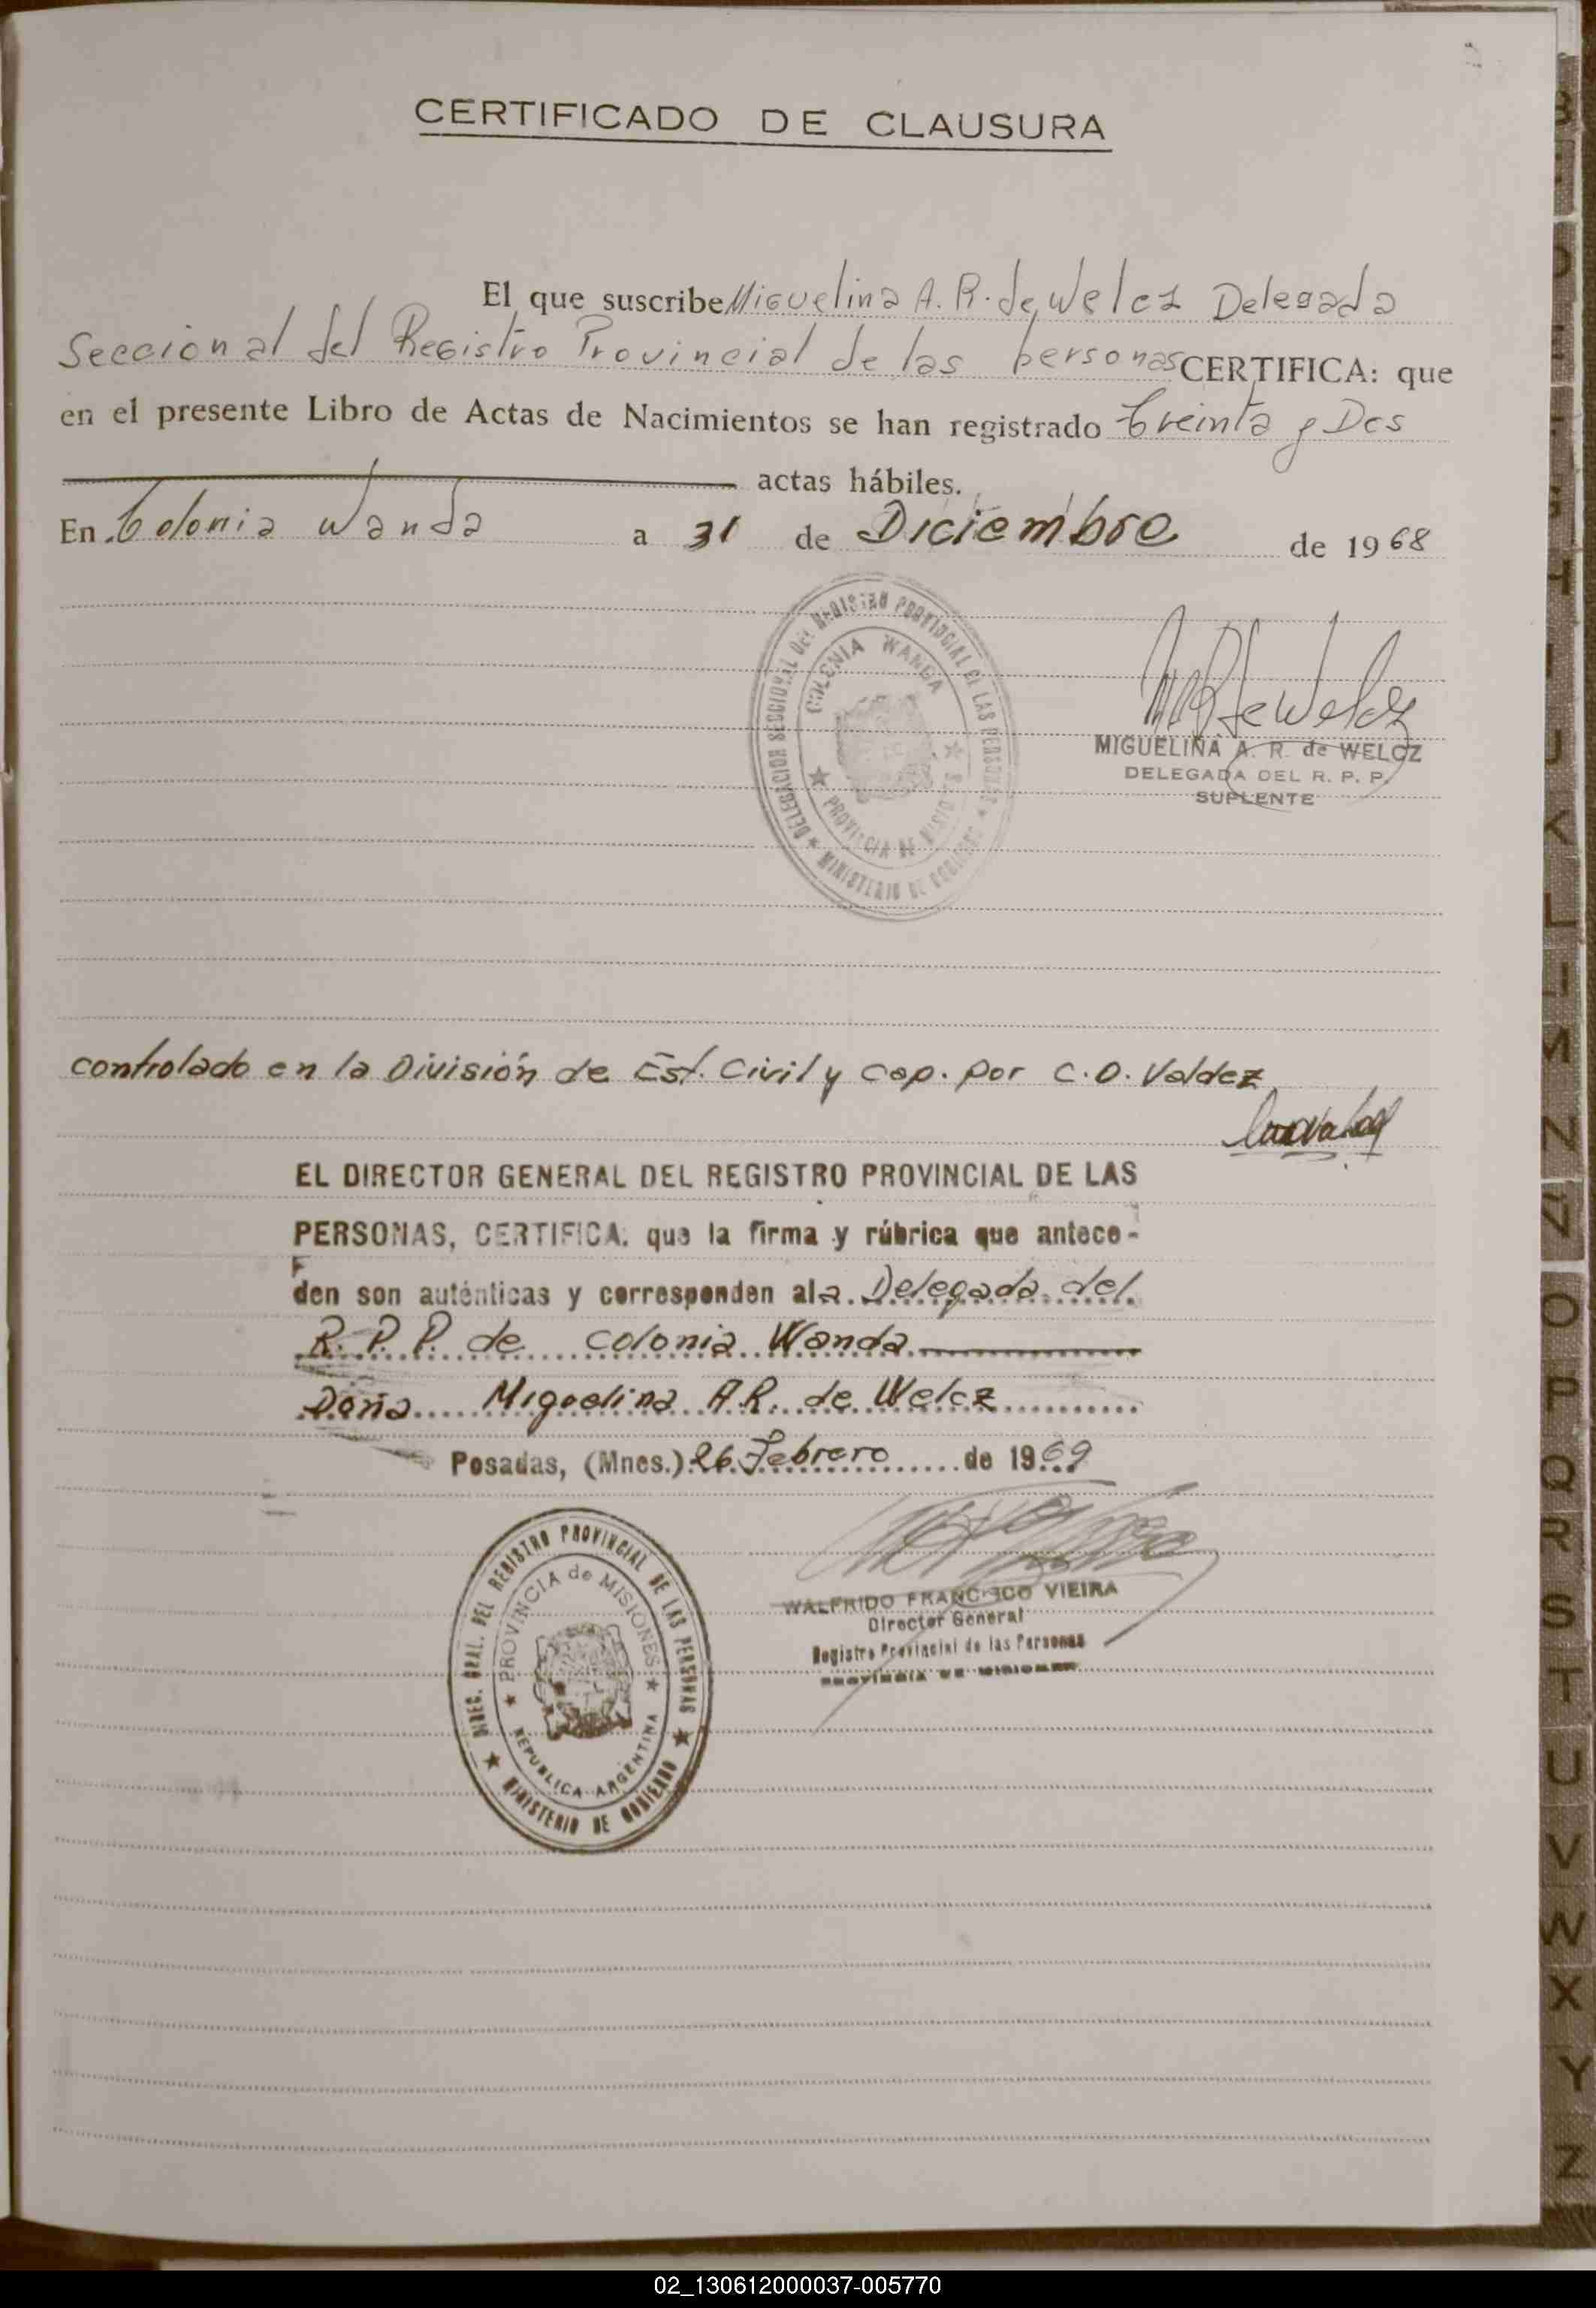 CERTIFICADO DE CLAUSURA
El que suscribe Miguelina A. R. de Welcz Delegada
Seccional del Registro Provincial de las personas CERTIFICA: que
en el presente Libro de Actas de Nacimientos se han registrado Treinta y Dos
actas hábiles.
En Colonia Wanda a 31 de Diciembre de 1968
DELEGACION SECCIONAL DEL REGISTRO PROVINCIAL DE LAS PERSONAS
COLONIA WANDA
PROVINCIA DE MISIONES
MINISTERIO DE GOBIERNO
MR de Welcz
MIGUELINA A. R. de WELCZ
DELEGADA DEL R. P. P.
SUPLENTE
controlado en la División de Est. Civil y Cap. por C. O. Valdez
EL DIRECTOR GENERAL DEL REGISTRO PROVINCIAL DE LAS
PERSONAS, CERTIFICA: que la firma y rúbrica que antece-
den son auténticas y corresponden al a Delegada del
R. P. P. de Colonia Wanda
Doña Miguelina A.R. de Welcz
Posadas, (Mnes.) 26 Febrero de 1969
DIREC. GRAL. DEL REGISTRO PROVINCIAL DE LAS PERSONAS
PROVINCIA de MISIONES
REPUBLICA ARGENTINA
MINISTERIO DE GOBIERNO
WALFRIDO FRANCISCO VIEIRA
Director General
Registro Provincial de las Personas
PROVINCIA DE MISIONES
B
D
G
H
I
J
K
L
Ll
M
N
Ñ
O
P
Q
R
S
T
U
V
W
X
Y
Z
02_130612000037-005770